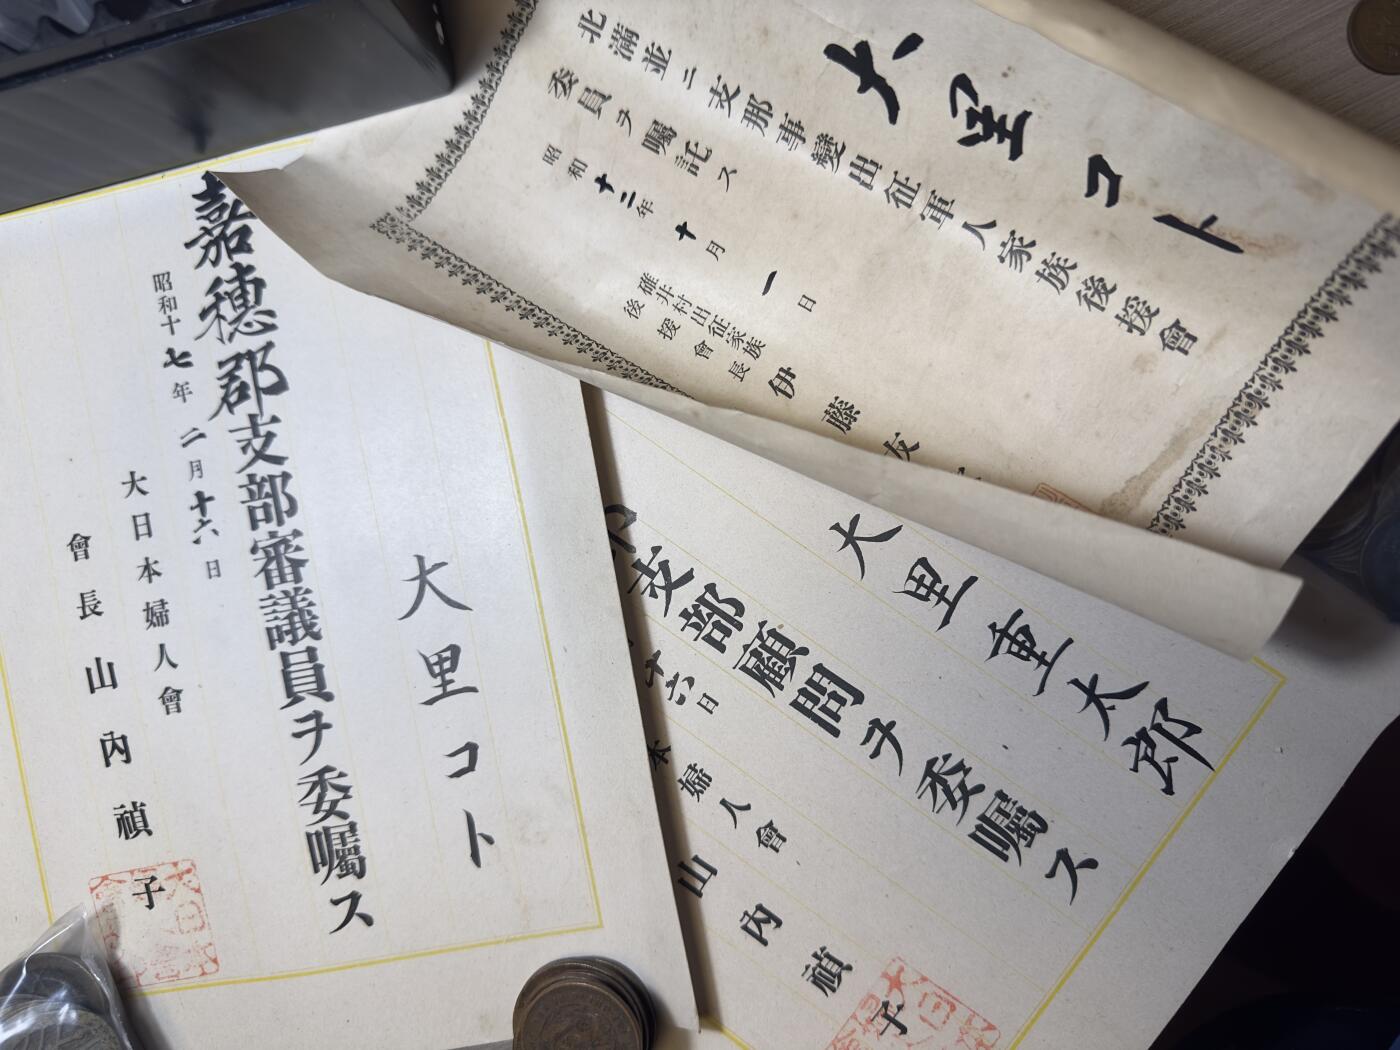 大里コト
北滿並ニ支那事變出征軍人家族後援會
委員ヲ囑託ス
昭和十三年十月一日
碓井村出征家族
後援會長
伊藤友
大里コト
嘉穗郡支部審議員ヲ委囑ス
昭和十七年二月十六日
大日本婦人會
會長山內禎子
大里重太郎
支部顧問ヲ委囑ス
十六日
本婦人會
山內禎子